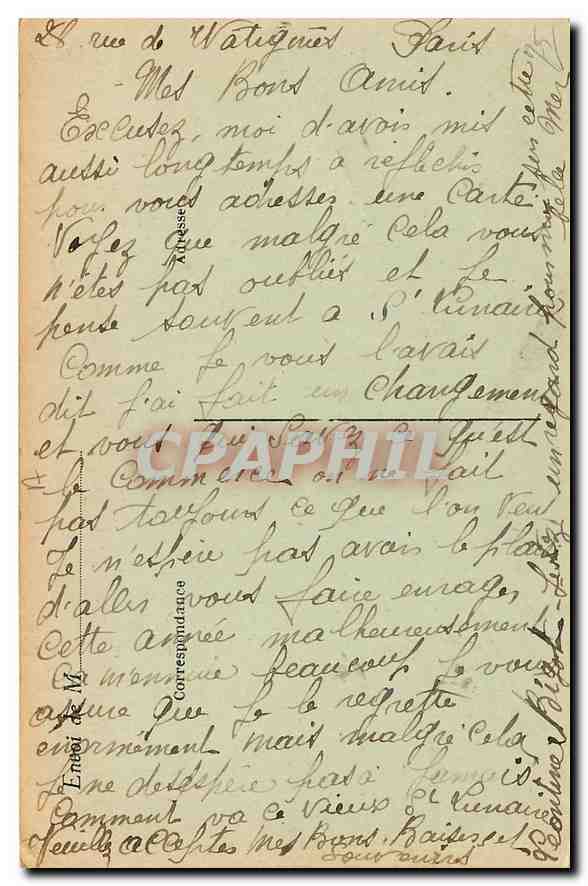 28 rue de Watignies Paris
Mes Bons Amis.
Excusez, moi d'avois mis
aussi longtemps a reflechis
pour vous adresser une carte
Voyez que malgré cela vous
n'êtes pas oubliés et Je
pense souvent a St Lunaire
Comme Je vous l'avais
dit J'ai fait un changement
et vous qui savez ce qu'est
le commerce on ne fait
pas toujours ce que l'on veut
Je n'espère pas avois le plaisir
d'aller vous faire enrager
cette année malheureusement
Ca m'ennuie beaucoup Je vous
assure que Je le regrette
enormément mais malgré cela
Je ne désèspère pas a Jamais
Comment va ce vieux St Lunaire
Veuillez acceptes Mes Bons. Baisers et
souvenirs
Leontine Bizot
Jetez un regard pour moi sur cette
belle Mer
Adresse
Correspondance
Envoi de M
CPAPHIL